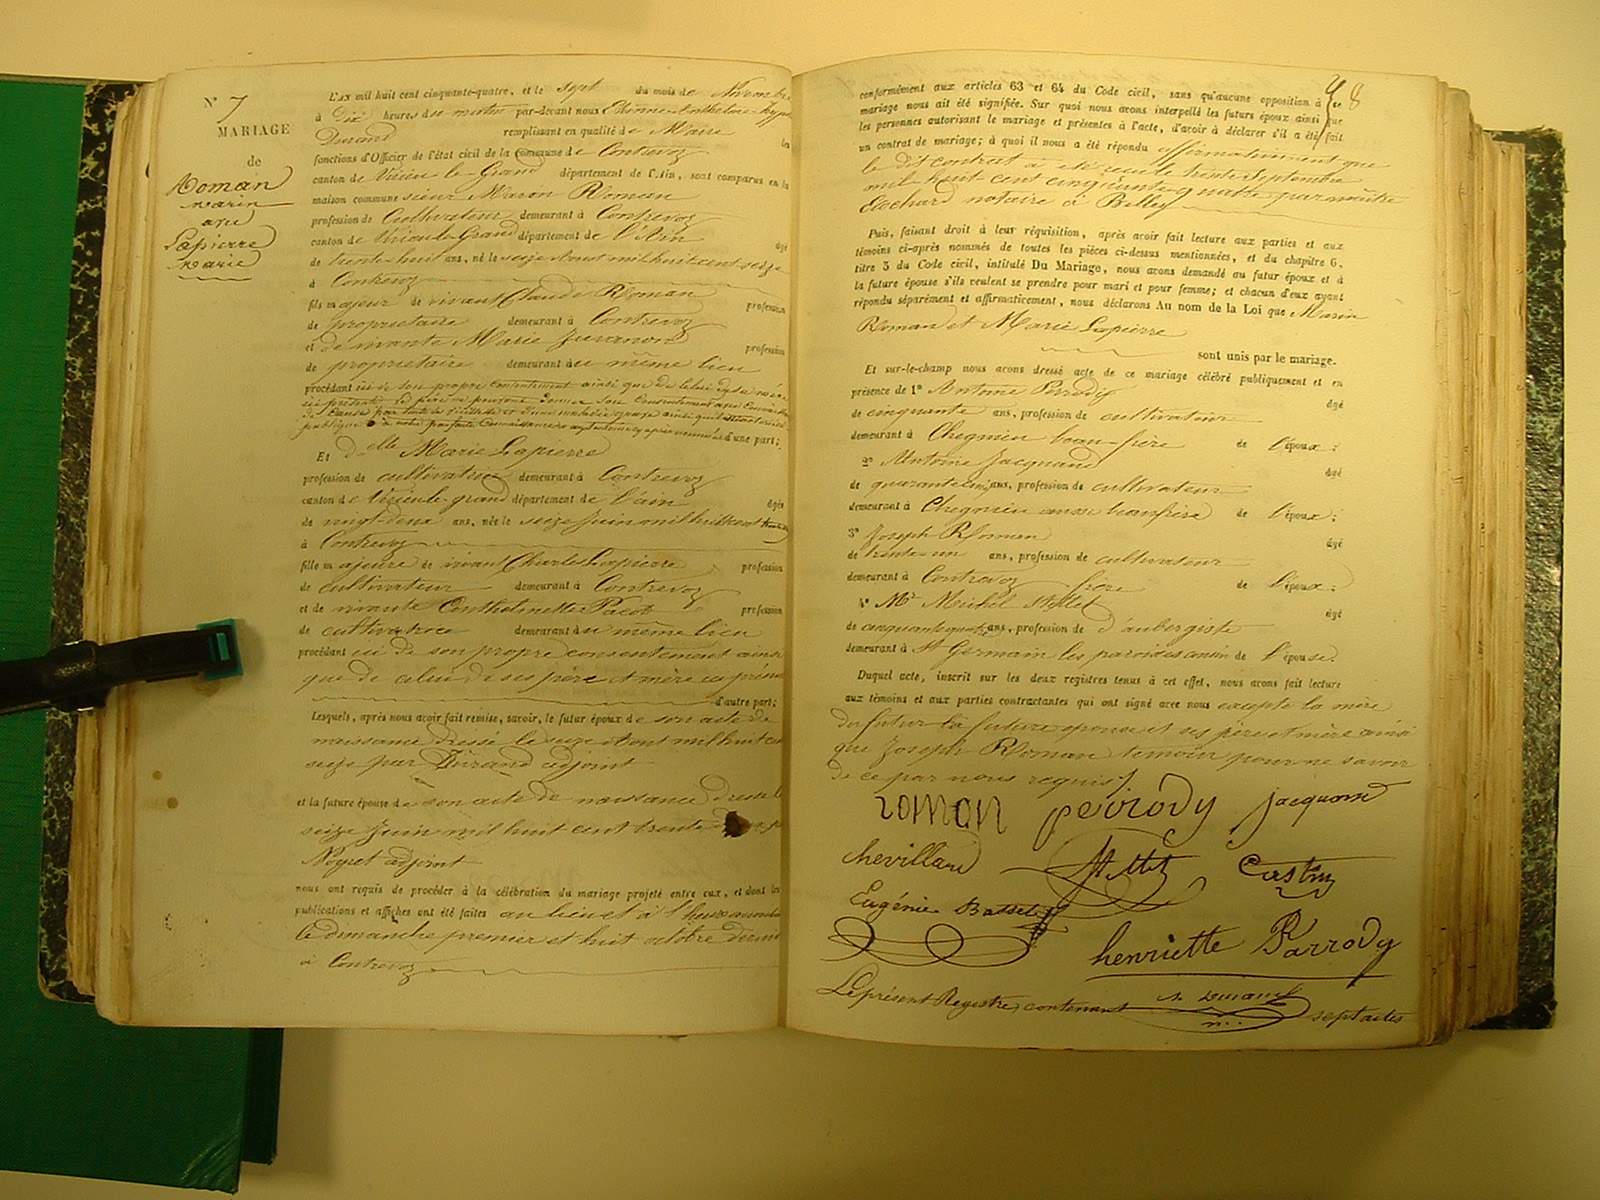 N° 7
MARIAGE
de
Roman
Marin
avec
Lapierre
Marie
L'AN mil huit cent cinquante-quatre, et le sept du mois de Novembre
à Dix heures du matin par-devant nous Etienne Anthelme
Durand remplissant en qualité de Maire les
fonctions d'Officier de l'état civil de la Commune de Contrevoz
canton de Virieu-le-Grand département de l'Ain, sont comparus en la
maison commune sieur Maron Roman
profession de Cultivateur demeurant à Contrevoz
canton de Virieu-le-Grand département de l'Ain âgé
de trente-huit ans, né le seize Aout mil huit cent seize
à Contrevoz
fils majeur de vivant Claude Roman profession
de propriétaire demeurant à Contrevoz
et de vivante Marie Juvanon profession
de propriétaire demeurant au même lieu
procédant ici de son propre consentement ainsi que de celui de sa mère
ici présente le père ne pouvant donner son consentement
de cause par suite de vieillesse et d'une maladie grave ainsi qu'il
publique à notre parfaite connaissance d'une part;
Et delle Marie Lapierre
profession de cultivatrice demeurant à Contrevoz
canton de Virieu-le-grand département de l'ain âgée
de vingt-deux ans, née le seize Juin mil huit cent trente
à Contrevoz
fille majeure de vivant Charles Lapierre profession
de cultivateur demeurant à Contrevoz
et de vivante Anthelmette Pacot profession
de cultivatrice demeurant au même lieu
procédant ici de son propre consentement ainsi
que de celui de ses père et mère ici présens
d'autre part;
Lesquels, après nous avoir fait remise, savoir, le futur époux de son acte de
naissance dressé le seize Aout mil huit cent
seize par Durand adjoint
et la future épouse de son acte de naissance dressé le
seize Juin mil huit cent trente
Noyret adjoint
nous ont requis de procéder à la célébration du mariage projeté entre eux, et dont les
publications et affiches ont été faites au lieu et à l'heure
le dimanche premier et huit octobre dernier
à Contrevoz
8
conformément aux articles 63 et 64 du Code civil, sans qu'aucune opposition à ce
mariage nous ait été signifiée. Sur quoi nous avons interpellé les futurs époux ainsi que
les personnes autorisant le mariage et présentes à l'acte, d'avoir à déclarer s'il a été fait
un contrat de mariage; à quoi il nous a été répondu affirmativement que
le dit contrat a été reçu le trente Septembre
mil huit cent cinquante-quatre par maître
Cochard notaire à Belley
Puis, faisant droit à leur réquisition, après avoir fait lecture aux parties et aux
témoins ci-après nommés de toutes les pièces ci-dessus mentionnées, et du chapitre 6,
titre 5 du Code civil, intitulé Du Mariage, nous avons demandé au futur époux et à
la future épouse s'ils veulent se prendre pour mari et pour femme; et chacun d'eux ayant
répondu séparément et affirmativement, nous déclarons Au nom de la Loi que Marin
Roman et Marie Lapierre
sont unis par le mariage.
Et sur-le-champ nous avons dressé acte de ce mariage célébré publiquement et en
présence de 1° Antoine Perrody âgé
de cinquante ans, profession de cultivateur
demeurant à Chegnieu beau-frère de l'époux;
2° Antoine Jacquand âgé
de quarante cinq ans, profession de cultivateur
demeurant à Chegnieu aussi beaufrère de l'époux;
3° Joseph Roman âgé
de trente-un ans, profession de cultivateur
demeurant à Contrevoz frère de l'époux;
4° Mr Michel Millet âgé
de cinquante quatre ans, profession d'aubergiste
demeurant à St Germain les paroisses cousin de l'épouse.
Duquel acte, inscrit sur les deux registres tenus à cet effet, nous avons fait lecture
aux témoins et aux parties contractantes qui ont signé avec nous excepté la mère
du futur la future épouse et ses père et mère ainsi
que Joseph Roman temoin pour ne savoir
de ce par nous requis
roman perrody jacquand
chevilland Millet Castin
Eugénie Basset
henriette Parrody
Le présent Registre contenant A. Durand sept actes